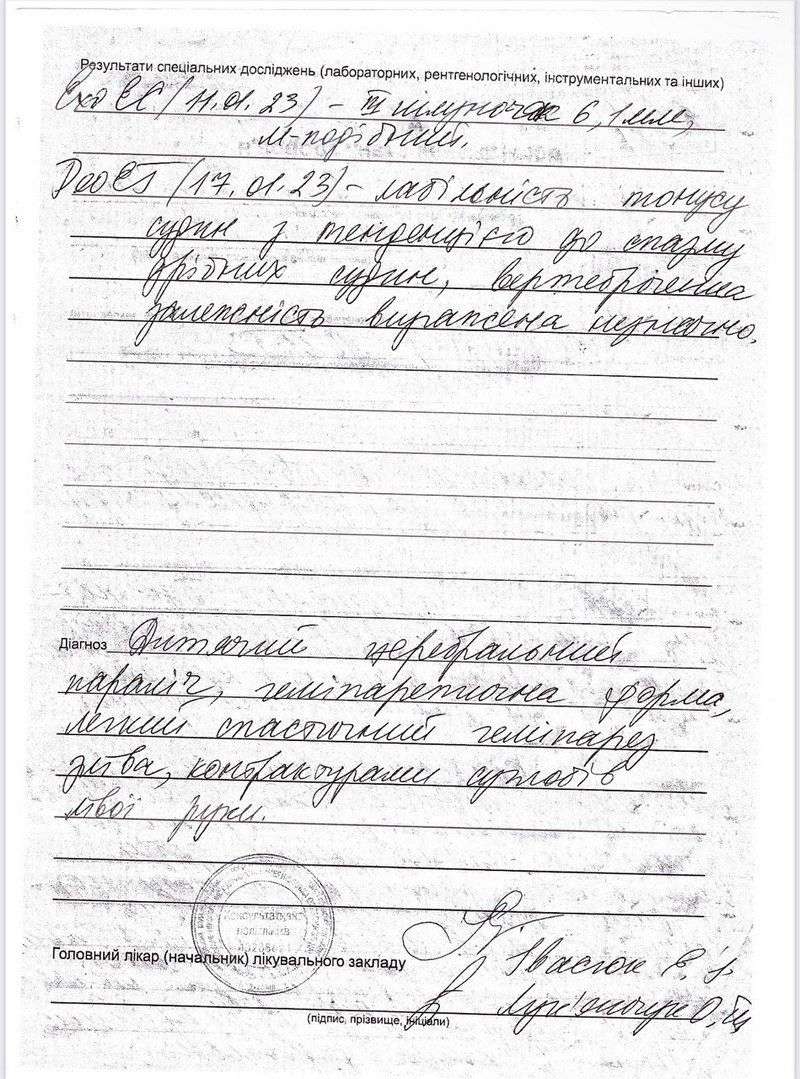 Результати спеціальних досліджень (лабораторних, рентгенологічних, інструментальних та інших)
Ехо ЕС (11.01.23) – III шлуночок 6,1 мм,
М-подібний.
РеоЕГ (17.01.23) – лабільність тонусу
судин з тенденцією до спазму
дрібних судин, вертеброгенна
залежність виражена незначно.
Діагноз Дитячий церебральний
параліч, геміпаретична форма,
легкий спастичний геміпарез
зліва, контрактурами суглобів
лівої руки.
Консультативна
поліклініка
Головний лікар (начальник) лікувального закладу
Івасюк
(підпис, прізвище, ініціали)